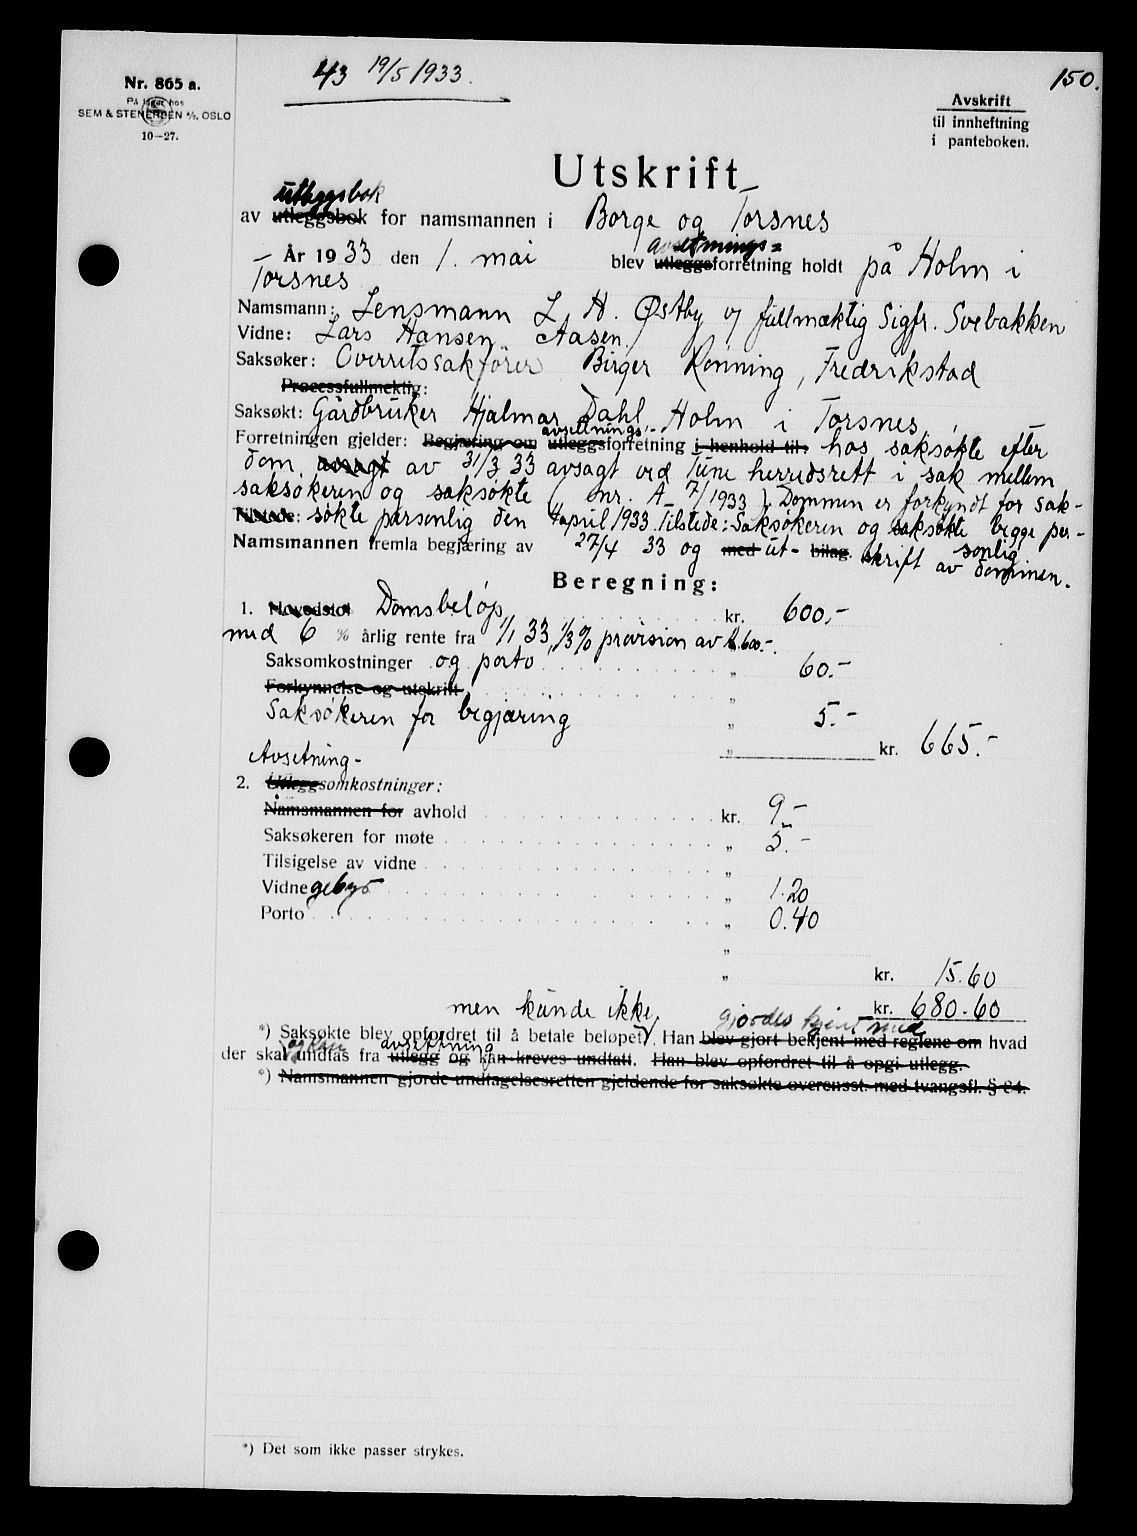 43 19/5 1933.
150.
Nr. 865 a.
På lager hos
SEM & STENERSEN A/S, OSLO
10-27.
Avskrift
til innheftning
i panteboken.
Utskrift
utleggsbok
av utleggsbok for namsmannen i Borge og Torsnes
avsetnings=
År 1933 den 1. mai blev utleggsforretning holdt på Holm i
Torsnes
Namsmann: Lensmann L. H. Østby v/ fullmæktig Sigfr. Svebakken
Vidne: Lars Hansen Aasen.
Saksøker: Overretssakfører Birger Rønning, Fredrikstad
Processfullmektig:
Saksøkt: Gårdbruker Hjalmar Dahl, Holm i Torsnes.
avsetnings-
Forretningen gjelder: Begjæring om utleggsforretning i henhold til: hos saksøkte efter
dom avsagt av 31/3 33 avsagt ved Tune herredsrett i sak mellem
saksøkeren og saksøkte (nr. A 7/1933). Dommen er forkyndt for sak-
Tilstede: søkte personlig den 4 april 1933. Tilstede: Saksøkeren og saksøkte begge per-
sonlig
Namsmannen fremla begjæring av 27/4 33 og med ut- bilag. skrift av dommen.
Beregning:
1. Hovedstol Domsbeløp kr. 600,-
med 6 % årlig rente fra 1/1 33, 1/3 % provision av kr. 600.-.
Saksomkostninger og porto „ 60.-
Forkynnelse og utskrift „
Saksøkeren for begjæring „ 5.-
„ kr. 665.-
Avsetning-
2. Utleggsomkostninger:
Namsmannen for avhold kr. 9.-
Saksøkeren for møte „ 5.-
Tilsigelse av vidne „
Vidnegebyr „ 1.20
Porto „ 0.40
„
„ kr. 15.60
kr. 680.60
men kunde ikke gjordes kjent med
*) Saksøkte blev opfordret til å betale beløpet. Han blev gjort bekjent med reglene om hvad
avsettning
der skal undtas fra utlegg og kan kreves undtatt. Han blev opfordret til å opgi utlegg.
*) Namsmannen gjorde undtagelsesretten gjeldende for saksøkte overensst. med tvangsfl. § 84.
*) Det som ikke passer strykes.